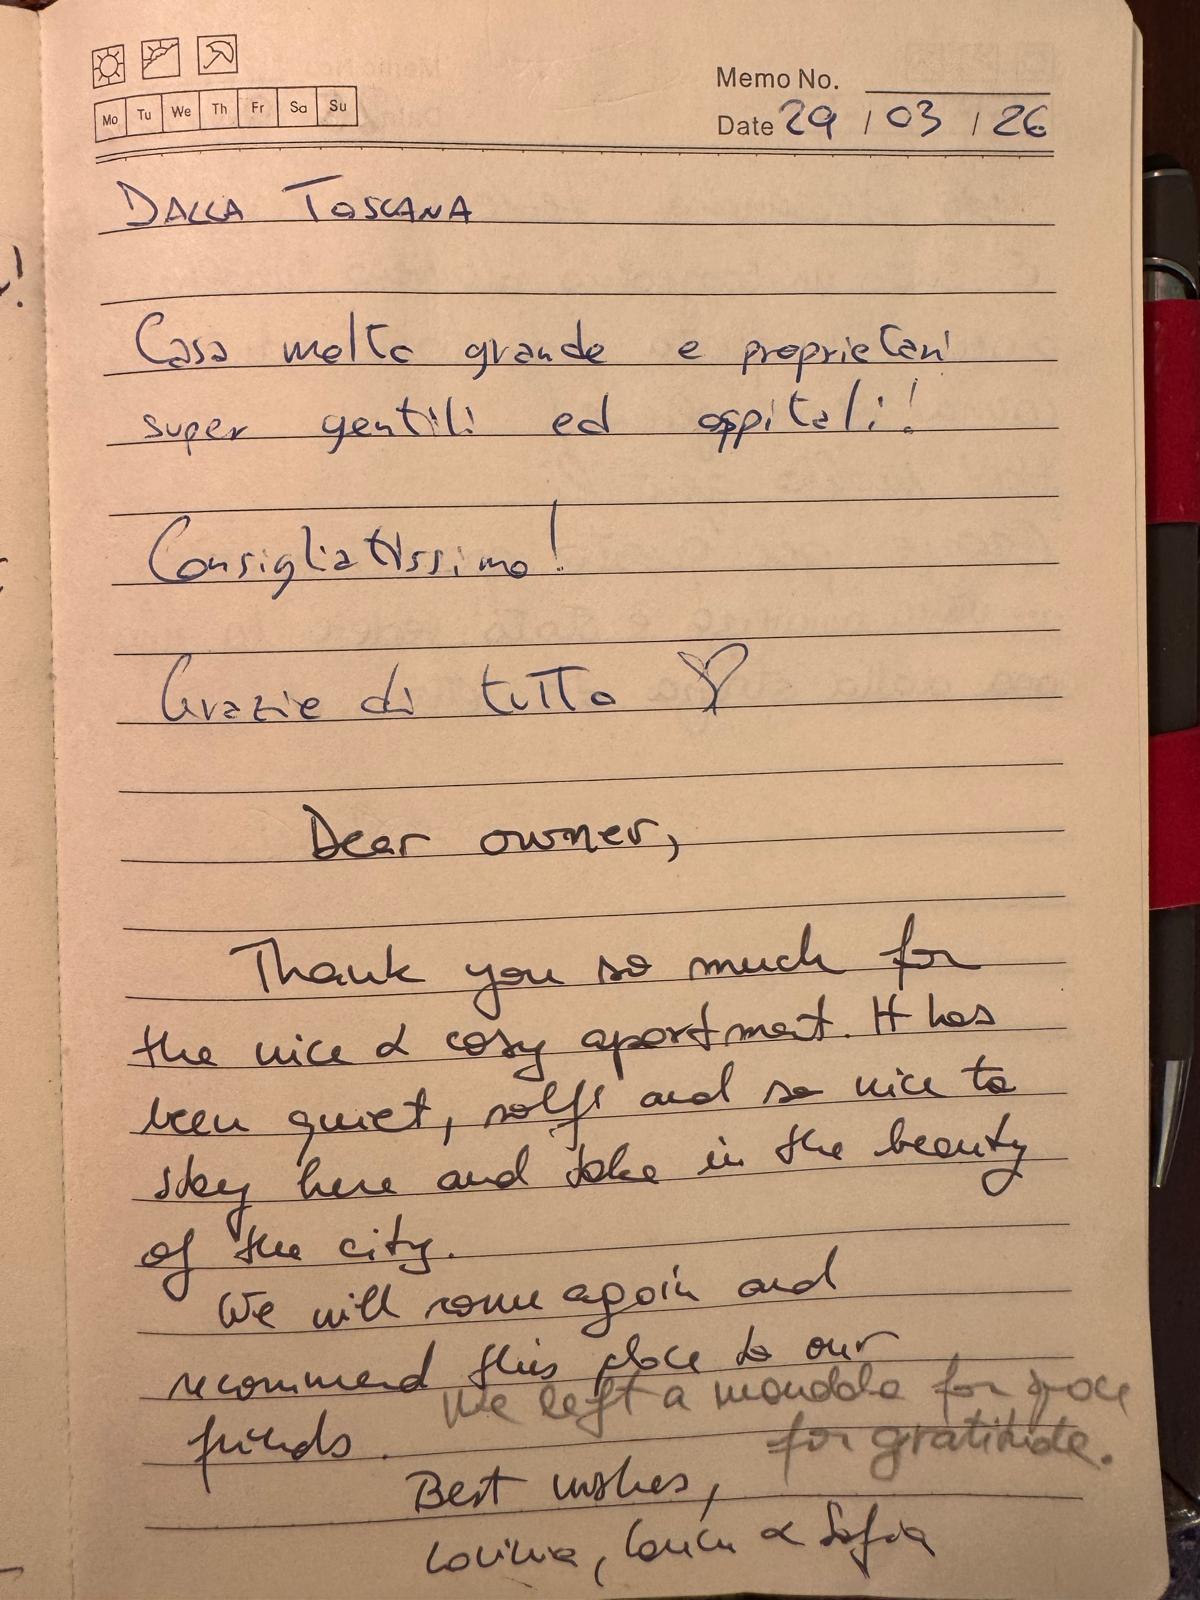 Memo No.
Mo Tu We Th Fr Sa Su
Date 29 / 03 / 26
DALLA TOSCANA
Casa molto grande e proprietari
super gentili ed ospitali!
Consigliatissimo!
Grazie di tutto ♡
Dear owner,
Thank you so much for
the nice & cosy apartment. It has
been quiet, and so nice to
stay here and take in the beauty
of the city.
We will come again and
recommend this place to our
friends.
We left a mandala for
for gratitude.
Best wishes,
& Sofia